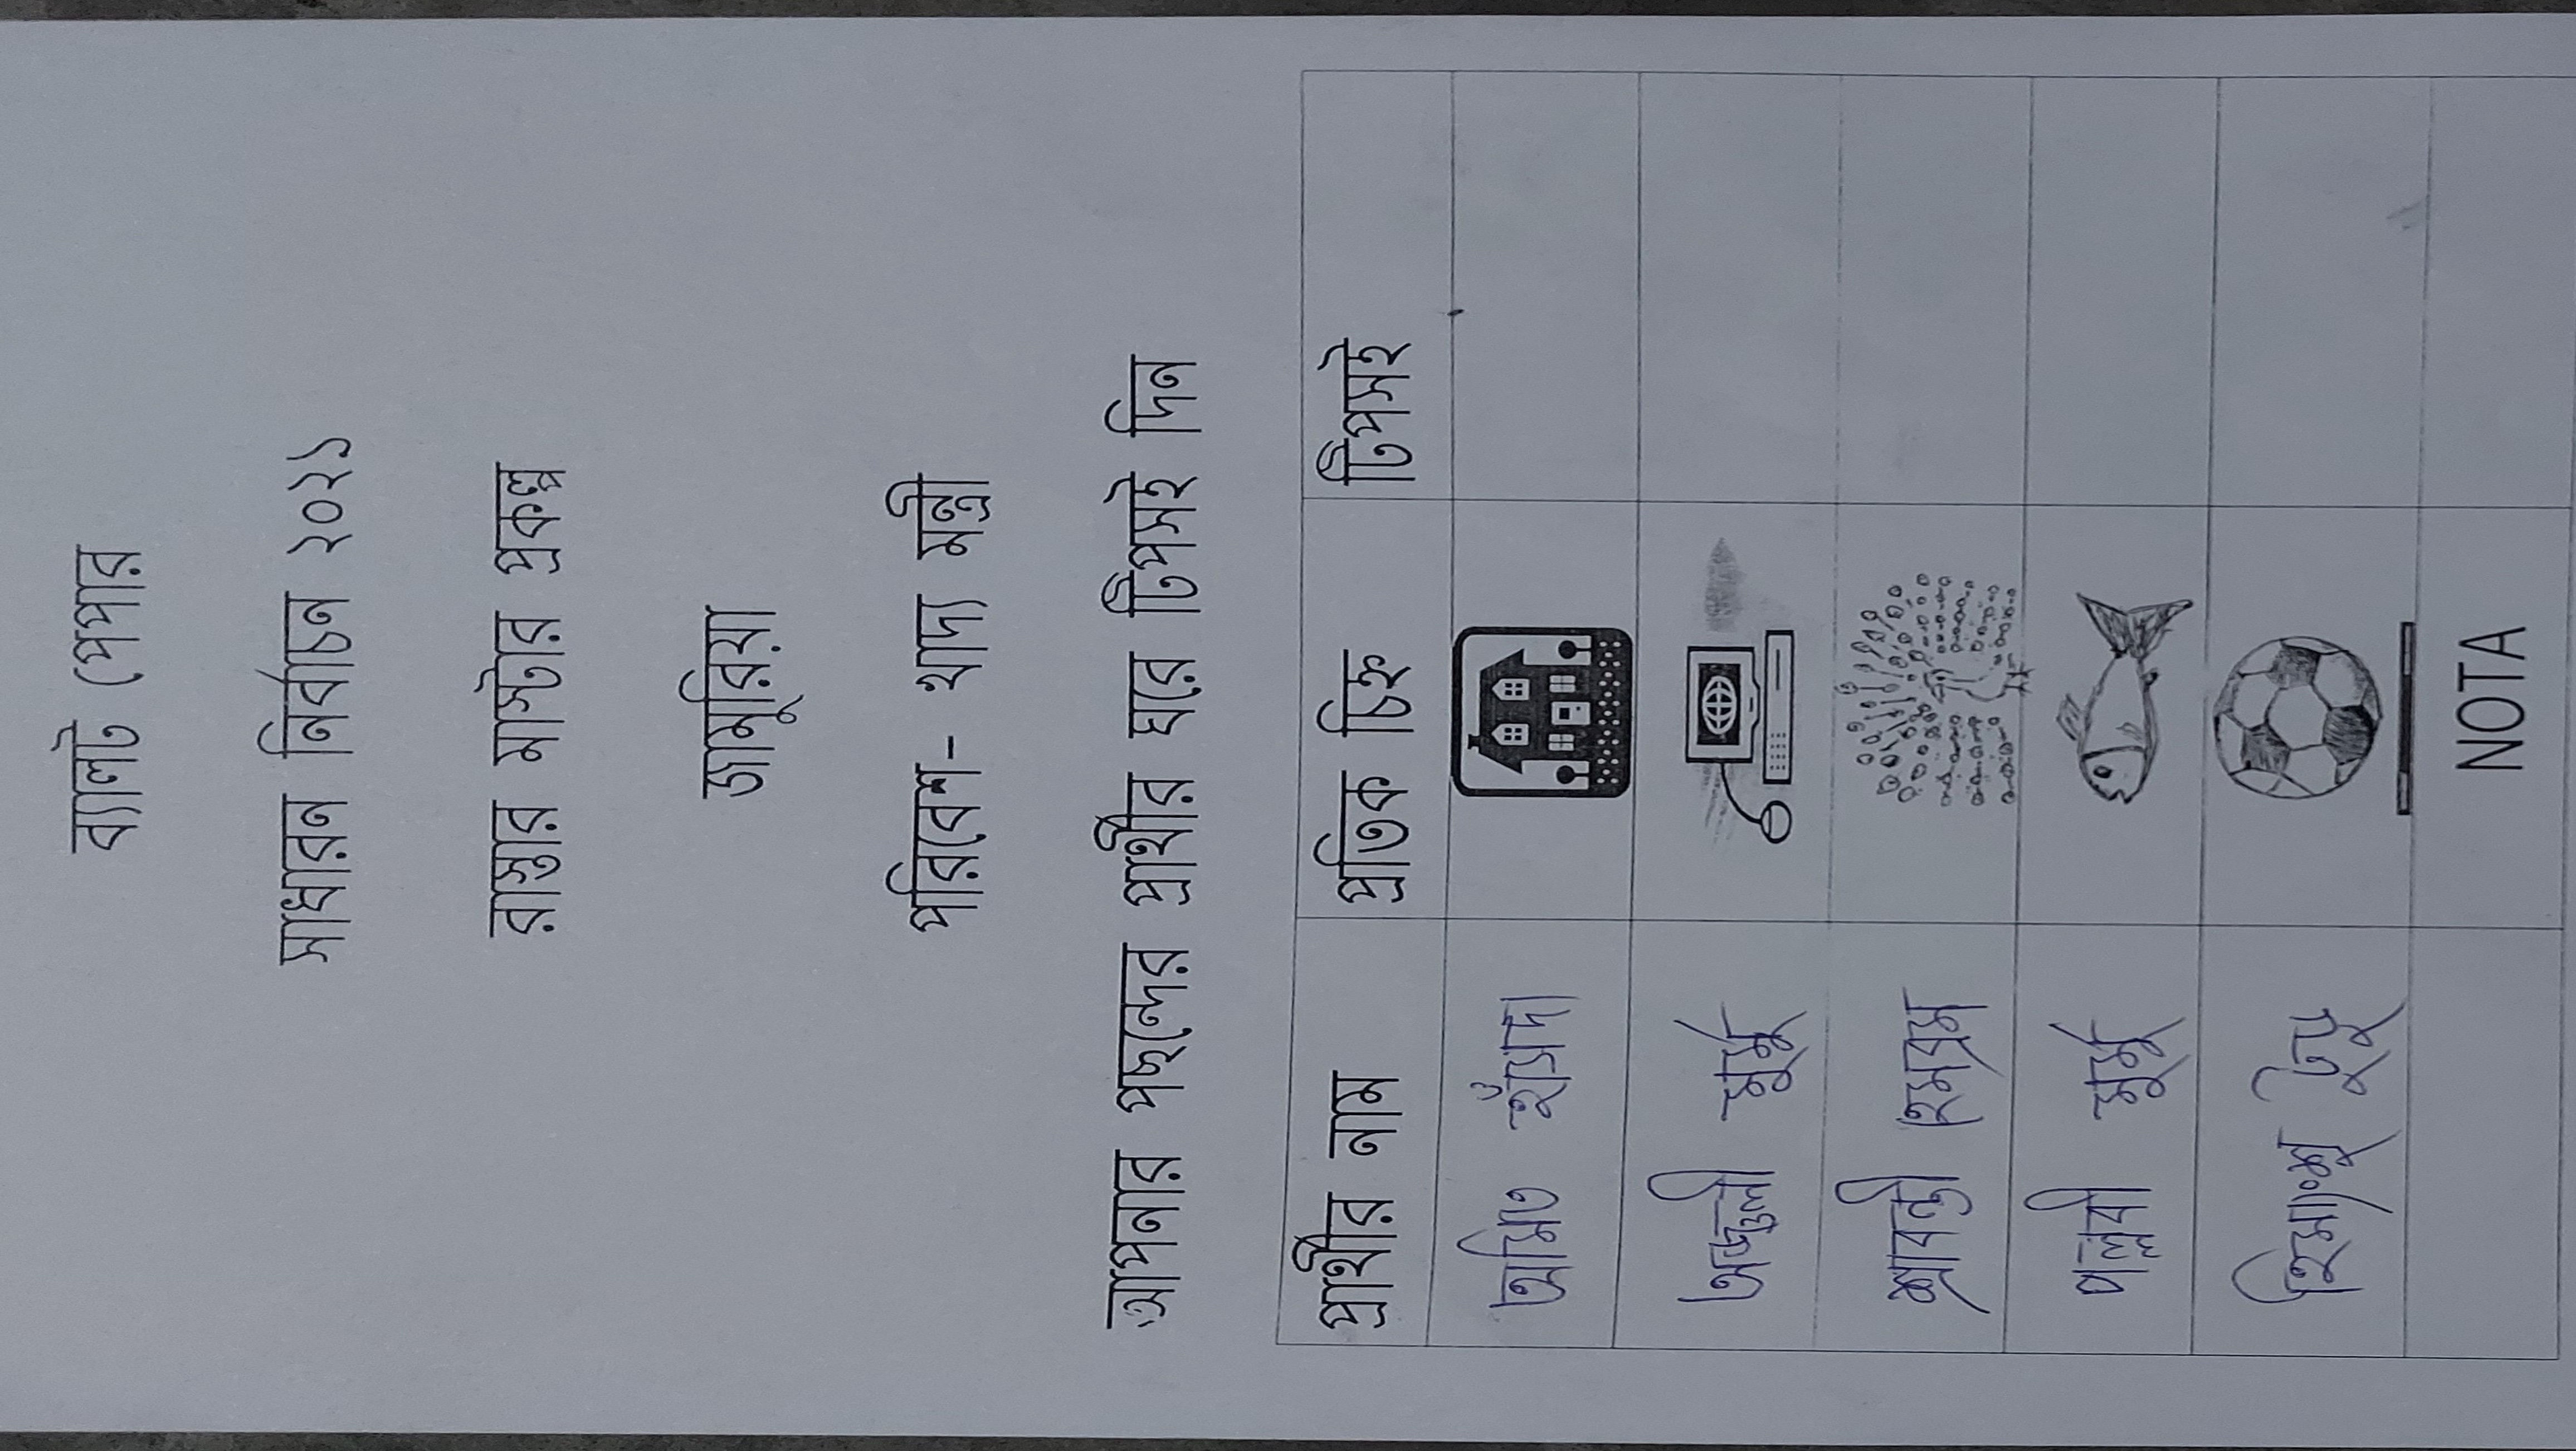 ব্যালট পেপার
সাধারন নির্বাচন ২০২১
রাস্তার মাস্টার প্রকল্প
জামুরিয়া
পরিবেশ- খাদ্য মন্ত্রী
আপনার পছন্দের প্রার্থীর ঘরে টিপসই দিন
প্রার্থীর নাম প্রতিক চিহ্ন টিপসই
অমিত হাঁসদা
অঞ্জলী মূর্মূ
শ্রাবন্তী হেমব্রম
পল্লবী মূর্মূ
হিমাংশু টুডু
NOTA